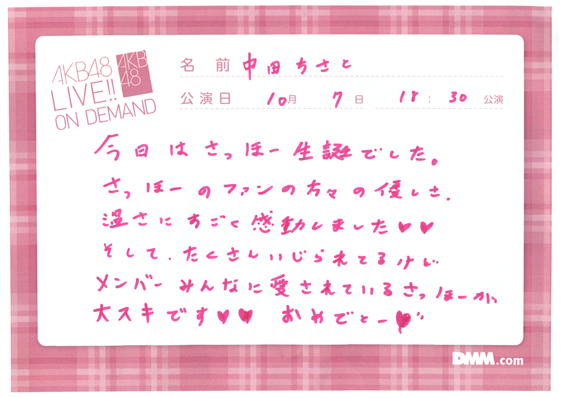 AKB48
LIVE!!
ON DEMAND
AKB
48
名 前 中田ちさと
公演日 10月 7日 18:30 公演
今日はさっほー生誕でした。
さっほーのファンの方々の優しさ、
温さにすごく感動しました♥♥
そして、たくさんいじられてるけど
メンバーみんなに愛されているさっほーが、
大スキです♥♥ おめでとー♥"
DMM.com